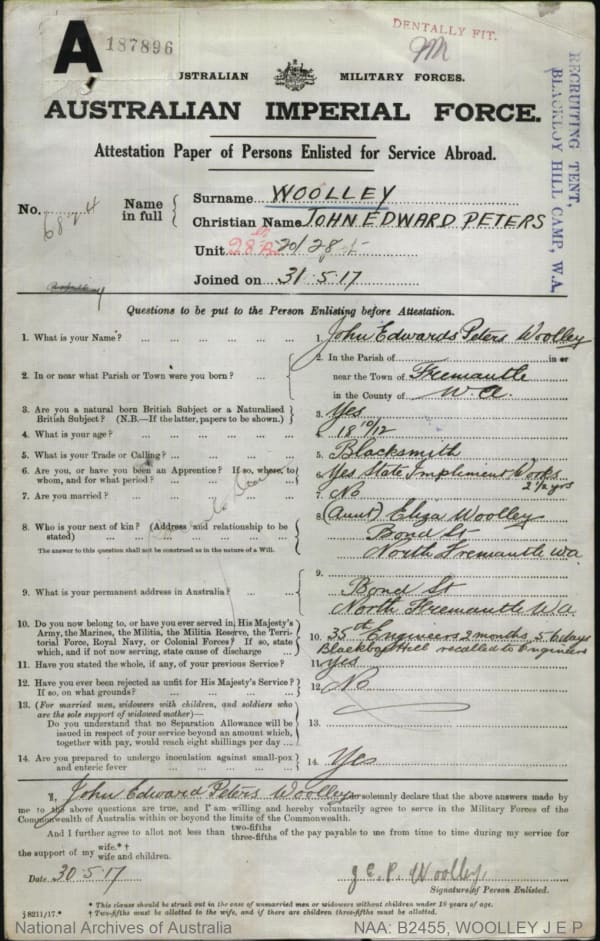 A
187896
DENTALLY FIT.
RECRUITING TENT,
BLACKBOY HILL CAMP, W.A.
USTRALIAN MILITARY FORCES.
AUSTRALIAN IMPERIAL FORCE.
Attestation Paper of Persons Enlisted for Service Abroad.
No. 6824
Name in full
Surname WOOLLEY
Christian Name JOHN EDWARD PETERS
Unit 20/28
Joined on 31.5.17
Questions to be put to the Person Enlisting before Attestation.
1. What is your Name? ... 1. John Edwards Peters Woolley
2. In or near what Parish or Town were you born? ... 2. In the Parish of in or
near the Town of Fremantle
in the County of W.A.
3. Are you a natural born British Subject or a Naturalised
British Subject? (N.B.—If the latter, papers to be shown.) 3. Yes
4. What is your age? ... 4. 18 10/12
5. What is your Trade or Calling? ... 5. Blacksmith
6. Are you, or have you been an Apprentice? If so, where, to
whom, and for what period? ... 6. Yes State Implement Works
2 1/2 yrs
7. Are you married? ... 7. No
8. Who is your next of kin? (Address and relationship to be
stated) ... 8. (Aunt) Eliza Woolley
Bond St
North Fremantle W.A.
The answer to this question shall not be construed as in the nature of a Will.
9. What is your permanent address in Australia? ... 9.
Bond St
North Fremantle W.A.
10. Do you now belong to, or have you ever served in, His Majesty's
Army, the Marines, the Militia, the Militia Reserve, the Terri-
torial Force, Royal Navy, or Colonial Forces? If so, state
which, and if not now serving, state cause of discharge ... 10. 35th Engineers 2 months, 56 days
Blackboy Hill recalled to Engineers
11. Have you stated the whole, if any, of your previous Service? 11. Yes
12. Have you ever been rejected as unfit for His Majesty's Service?
If so, on what grounds? ... 12. No
13. (For married men, widowers with children, and soldiers who
are the sole support of widowed mother)—
Do you understand that no Separation Allowance will be
issued in respect of your service beyond an amount which,
together with pay, would reach eight shillings per day .... 13.
14. Are you prepared to undergo inoculation against small-pox
and enteric fever ... 14. Yes
I, John Edward Peters Woolley do solemnly declare that the above answers made by
me to the above questions are true, and I am willing and hereby voluntarily agree to serve in the Military Forces of the
Commonwealth of Australia within or beyond the limits of the Commonwealth.
And I further agree to allot not less than two-fifths three-fifths of the pay payable to me from time to time during my service for
the support of my wife.*† wife and children.
Date 30.5.17
J E P Woolley
Signature of Person Enlisted.
* This clause should be struck out in the case of unmarried men or widowers without children under 18 years of age.
† Two-fifths must be allotted to the wife, and if there are children three-fifths must be allotted.
§ 8211/17.*
National Archives of Australia
NAA: B2455, WOOLLEY J E P